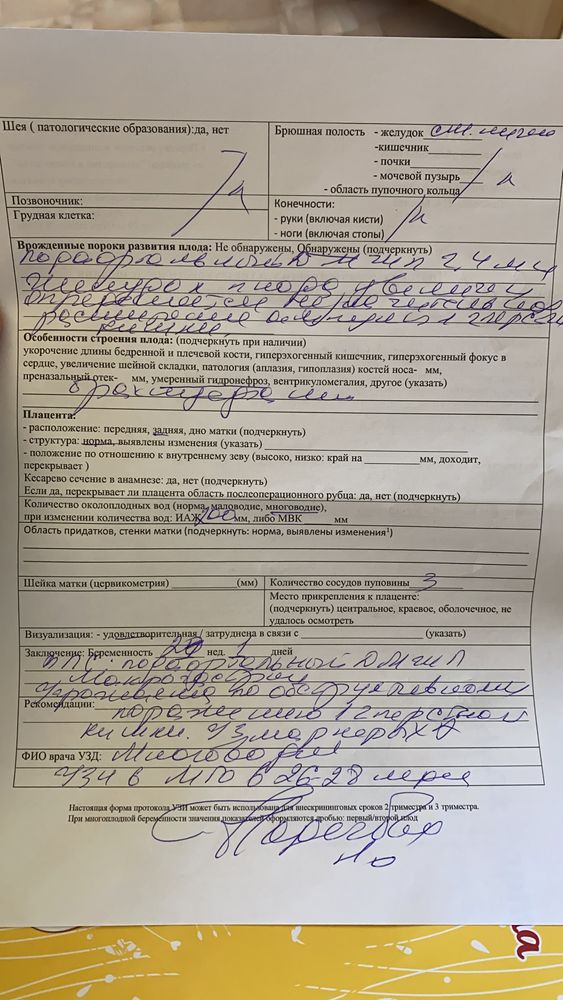 Шея ( патологические образования):да, нет
Брюшная полость - желудок см. ниже
-кишечник
- почки
- мочевой пузырь
- область пупочного кольца
Позвоночник:
Грудная клетка:
Конечности:
- руки (включая кисти)
- ноги (включая стопы)
Врожденные пороки развития плода: Не обнаружены, Обнаружены (подчеркнуть)
2,4 мм
желудок плода увеличен
определяется
расширение
кишки
Особенности строения плода: (подчеркнуть при наличии)
укорочение длины бедренной и плечевой кости, гиперэхогенный кишечник, гиперэхогенный фокус в
сердце, увеличение шейной складки, патология (аплазия, гипоплазия) костей носа- мм,
преназальный отек- мм, умеренный гидронефроз, вентрикуломегалия, другое (указать)
Плацента:
- расположение: передняя, задняя, дно матки (подчеркнуть)
- структура: норма, выявлены изменения (указать)
- положение по отношению к внутреннему зеву (высоко, низко: край на мм, доходит,
перекрывает )
Кесарево сечение в анамнезе: да, нет (подчеркнуть)
Если да, перекрывает ли плацента область послеоперационного рубца: да, нет (подчеркнуть)
Количество околоплодных вод (норма, маловодие, многоводие),
при изменении количества вод: ИАЖ 200 мм, либо МВК мм
Область придатков, стенки матки (подчеркнуть: норма, выявлены изменения¹)
Шейка матки (цервикометрия) (мм)
Количество сосудов пуповины 3
Место прикрепления к плаценте:
(подчеркнуть) центральное, краевое, оболочечное, не
удалось осмотреть
Визуализация: - удовлетворительная / затруднена в связи с (указать)
Заключение: Беременность нед. 1 дней
ВПС:
Рекомендации:
поражению 12 перстной
кишки.
ФИО врача УЗД: Многоводие
УЗИ в МГО в 26-28
Настоящая форма протокола УЗИ может быть использована для внескрининговых сроков 2 триместра и 3 триместра.
При многоплодной беременности значения показателей оформляются дробью: первый/второй плод